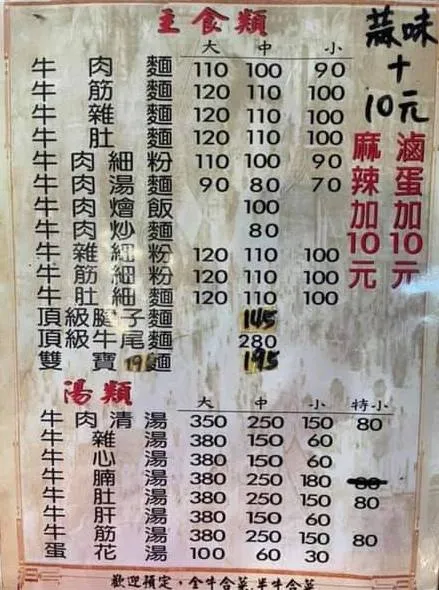 主食類
大 中 小
牛肉麵 110 100 90
牛筋麵 120 110 100
牛雜麵 120 110 100
牛肚麵 120 110 100
牛肉細粉 110 100 90
牛肉湯麵 90 80 70
牛肉燴飯 100
牛肉炒麵 80
牛雜細粉 120 110 100
牛筋細粉 120 110 100
牛肚細粉 120 110 100
頂級腱子麵 145
頂級牛尾麵 280
雙寶麵 195
蒜味
+
10元
滷蛋加10元
麻辣加10元
湯類
大 中 小 特小
牛肉清湯 350 250 150 80
牛雜湯 380 150 60
牛心湯 380 150 60
牛腩湯 380 250 180 80
牛肚湯 380 250 150 80
牛肝湯 380 150 60
牛筋湯 380 250 150 80
蛋花湯 100 60 30
歡迎預定,全牛含菜,半牛含菜